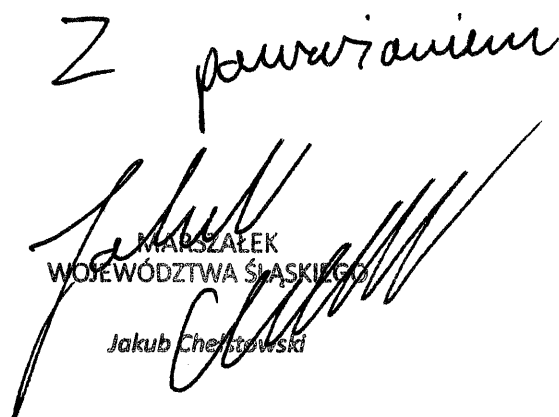 Z poważaniem
Jakub
MARSZAŁEK
WOJEWÓDZTWA ŚLĄSKIEGO
Jakub Chełstowski